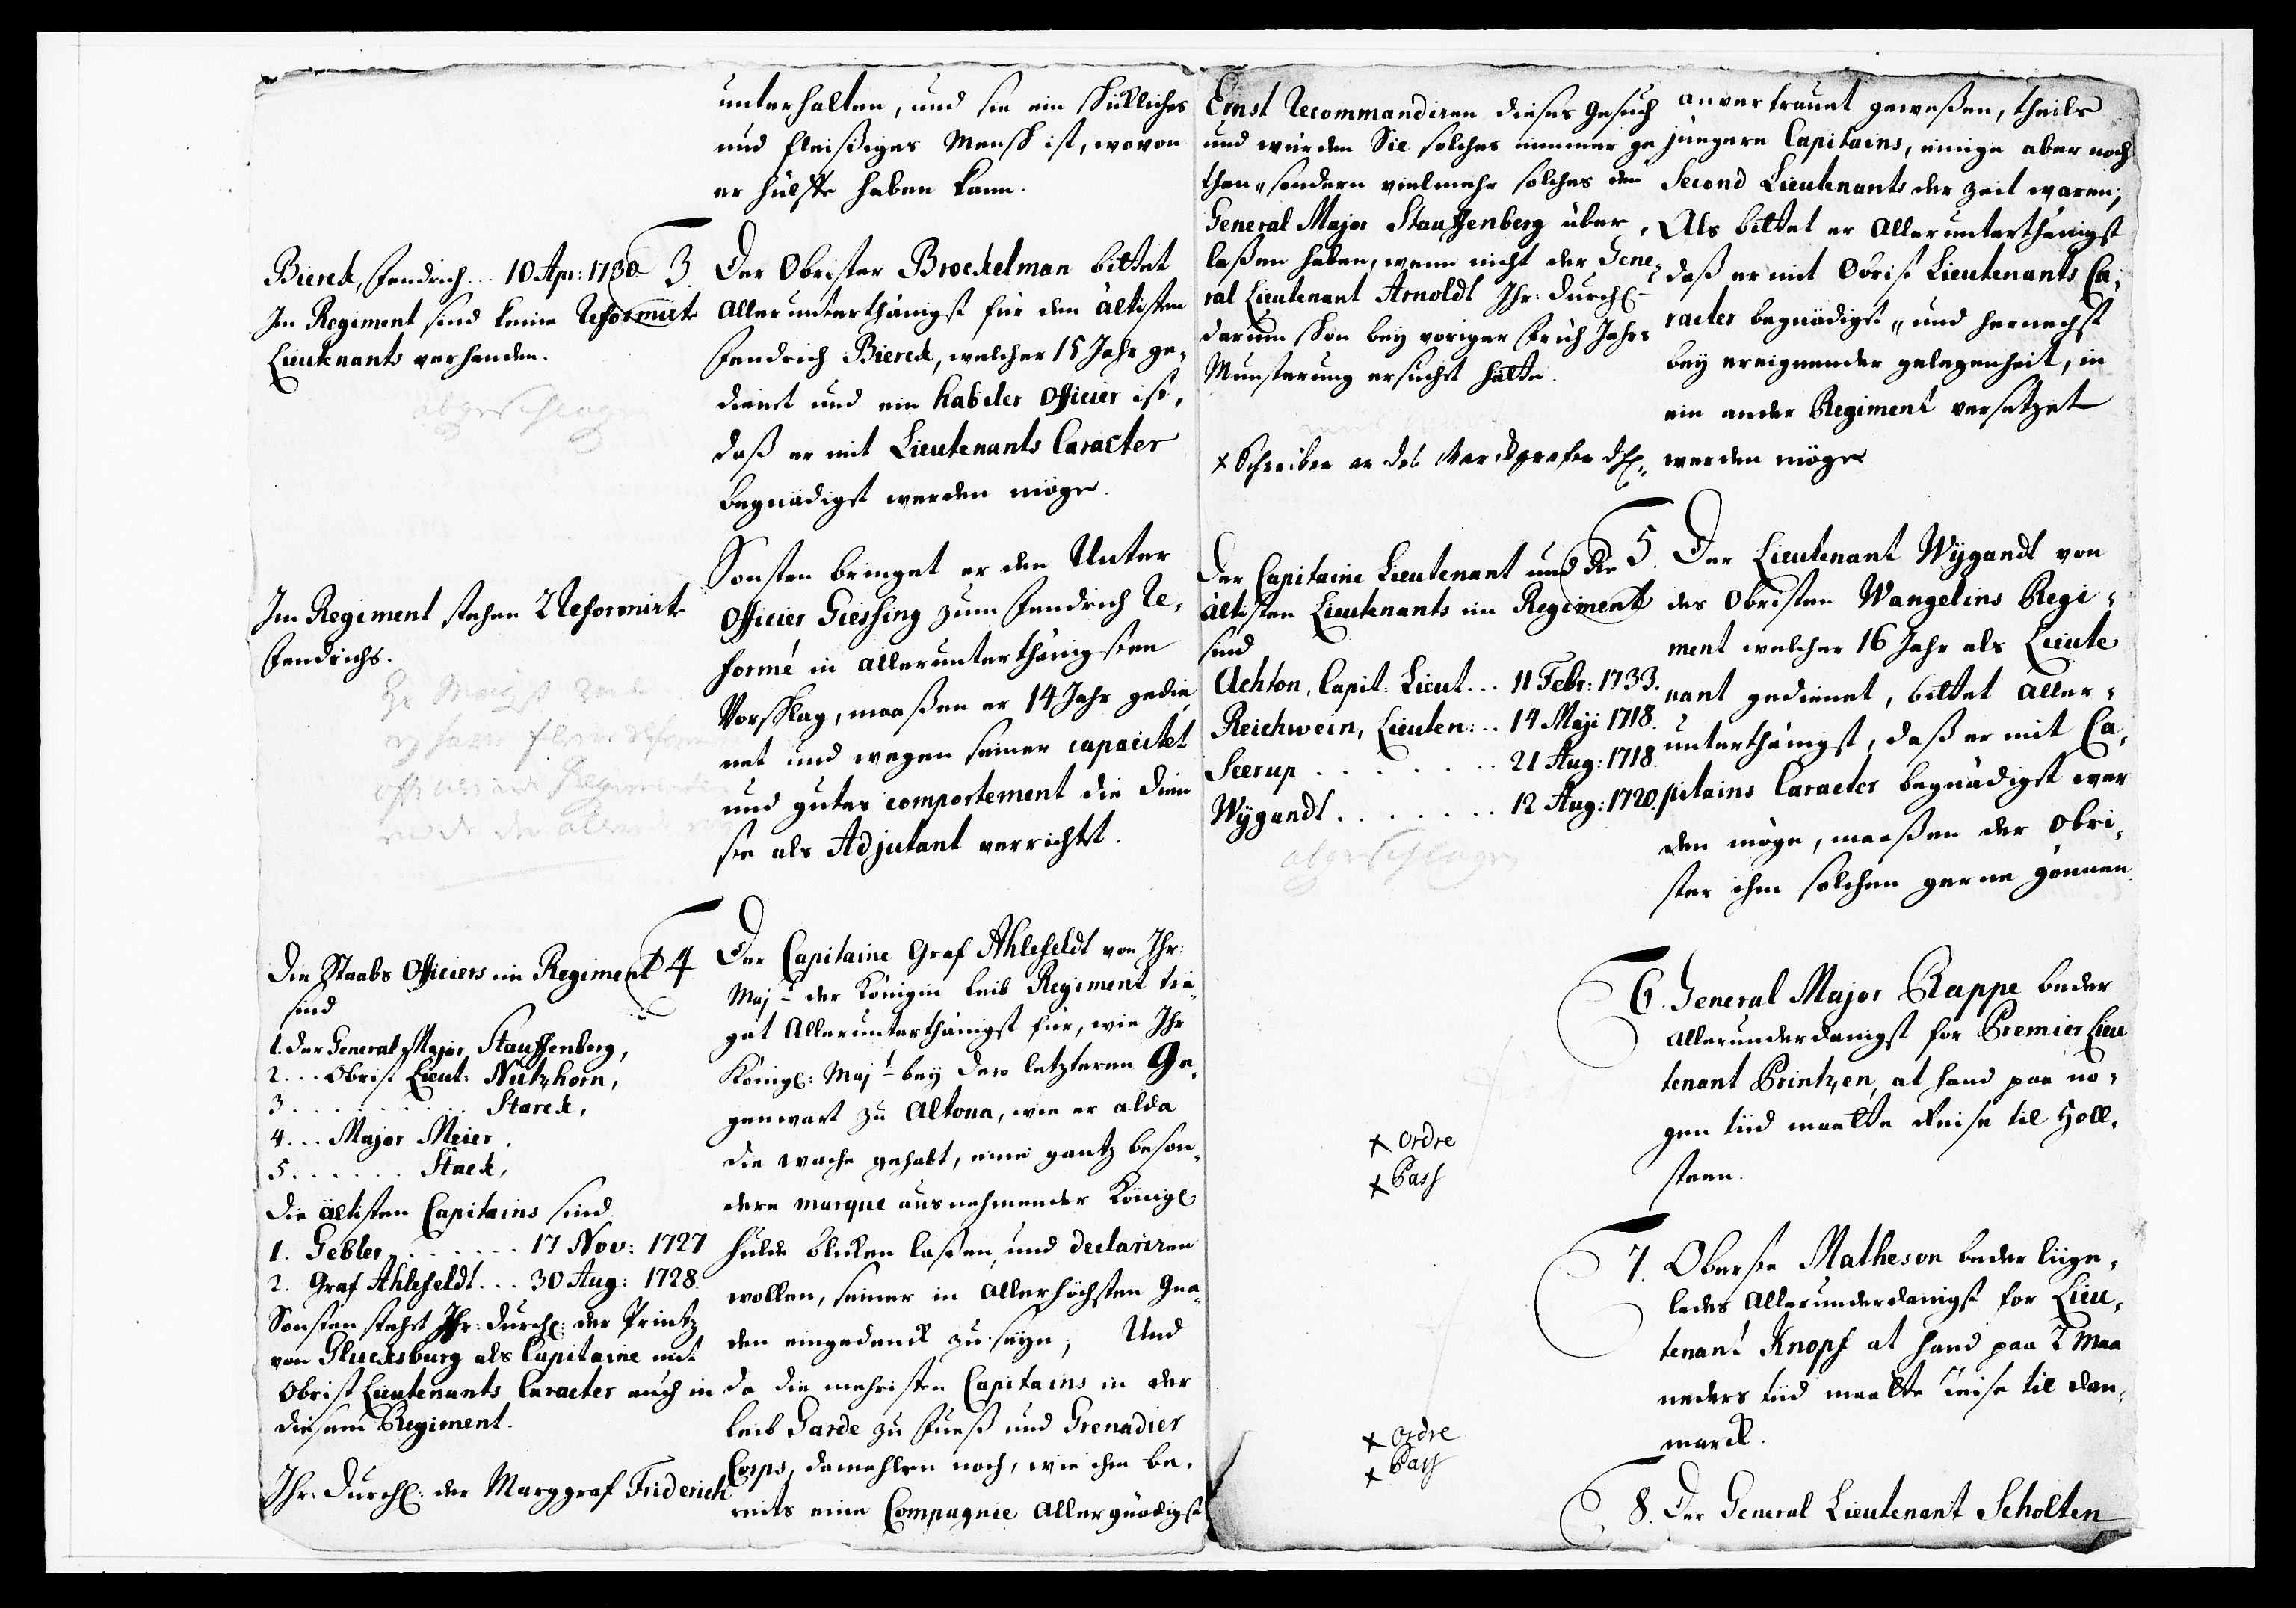 unterhalten, und sie ein schickliches
und fleißiges Mensch ist, wovon
er hülffe haben kann.
Bierck, Fendrich... 10 Apr: 1730
Im Regiment sind keine Reformirte
Lieutenants verhanden.
abgeschlag
3. Der Obrister Brockelman bittet
Allerunterthänigst für den ältisten
Fendrich Bierck, welcher 15 Jahr ge„
dienet und ein habiler Officier ist,
daß er mit Lieutenants Caracter
begnädiget werden möge.
Im Regiment stehen 2 Reformirte
Fendrichs.
Sonsten bringet er den Unter
Officier Giessing zum Fendrich Re„
formé in allerunterthänigsten
Vorschlag, maaßen er 14 Jahr gedie„
net und wegen seiner capacitet
und gutes comportement die Dien
ste als Adjutant verrichtet.
Die Staabs Officiers im Regiment
sind
1. Der General Major Stauffenberg,
2... Obrist Lieut: Nutzhorn,
3. . . . . . . . . . Starck,
4... Major Meier.
5. . . . . . Stack,
Die ältisten Capitains sind
1. Gebler . . . . . . 17 Nov: 1727
2. Graf Ahlefeldt... 30 Aug: 1728.
Sonsten stehet Ihr: Durchl: der Printz
von Glucksburg als Capitaine mit
Obrist Lieutenants Caracter auch in
diesem Regiment.
Ihr: Durchl: der Marggraf Friderich
4 Der Capitaine Graf Ahlefeldt von Ihr:
Majt der Königin Leib Regiment trä„
get Allerunterthänigst für, wie Ihr
Königl: Majt bey dero letzteren Ge„
genwart zu Altona, wie er alda
die wache gehabt, eine gantz beson„
dere marque ausnehmender Königl
hulde blicken laßen, und declariren
wollen, seiner in Allerhöchsten Gna„
den eingedenck zu seyn; Und
da die mehristen Capitains in der
Leib Garde zu Fueß und Grenadier
Corps, damahlen noch, wie ihm be„
reits eine Compagnie Allergnädigst
Ernst Recommandiren dieses Gesuch
und würden Sie solches nimmer ge
than„ sondern vielmehr solches dem
General Major Stauffenberg über„
laßen haben, wenn nicht der Gene„
ral Lieutenant Arnoldt Ihr: Durchl:
darum schon bey voriger Früh Jahrs
Munsterung ersuchet hätte.
x Schreiben an des Marckgrafen dhl:
anvertrauet gewesen, theils
jüngere Capitains, einige aber noch
Second Lieutenants der Zeit waren;
Als bittet er Allerunterthänigst
daß er mit Obrist Lieutenants Ca„
racter begnädigt„ und hernechst
bey ereignender gelegenheit, in
ein ander Regiment versetzet
werden möge
Der Capitaine Lieutenant und die
ältisten Lieutenants im Regiment
sind
Achton, Capit: Lieut... 11 Febr: 1733.
Reichwein, Lieuten:.. 14 Maji 1718.
Seerup . . . . . . . . 21 Aug: 1718.
Wÿgandt . . . . . . . 12 Aug: 1720.
abgeschlagen
5. Der Lieutenant Wÿgandt von
des Obristen Wangelins Regi„
ment welcher 16 Jahr als Lieute
nant gedienet, bittet Aller„
unterthänigst, daß er mit Ca„
pitains Caracter begnädiget wer
den möge, maaßen der Obri„
ster ihm solchen gerne gönnen
6. General Major Rappe beder
Allerunderdanigst for Premier Lieu
tenant Printzen, at hand paa no„
gen tiid maatte Reise til Holl„
steen.
x Ordre
x Pass
7. Oberste Matheson beder liige„
ledes Allerunderdanigst for Lieu„
tenant Knopf at hand paa 2 Maa
neders tiid maatte Reise til Dan„
marck.
x Ordre
x Pass
8. Der General Lieutenant Scholten